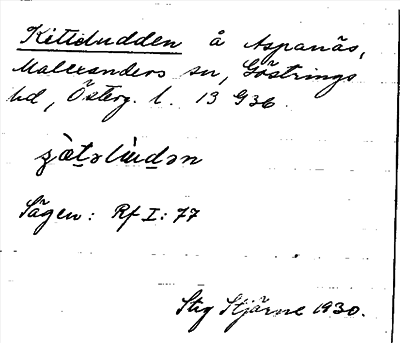 Kittludden å Aspanäs,
Malexanders sn, Göstrings
hd, Österg. l. 13 G 36.
Sägen: Rf I: 77
Stig Stjärne 1930.